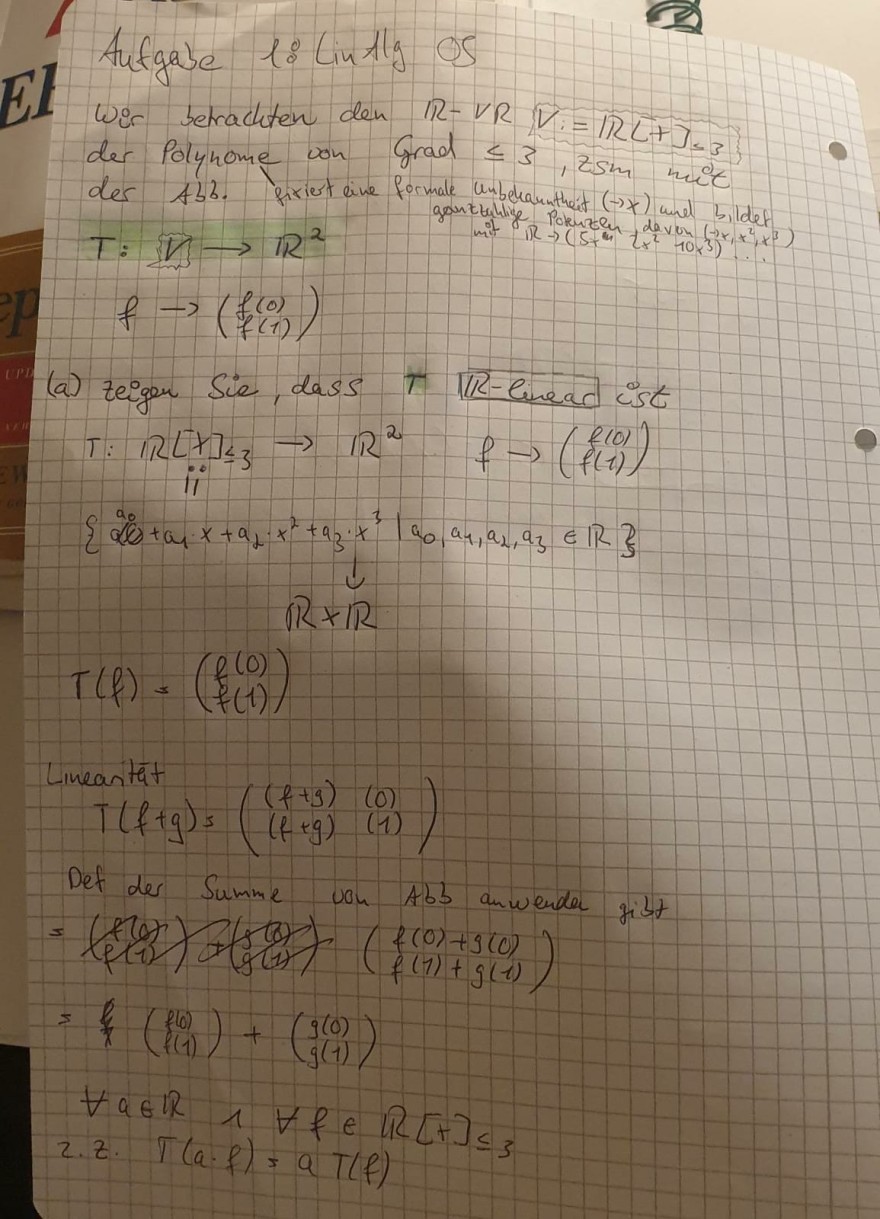 Aufgabe 18 LinAlg OS
Wir betrachten den ℝ-VR V := ℝ[t]≤3
der Polynome von Grad ≤ 3, zsm mit
der Abb. fixiert eine formale Unbekanntheit (→x) und bildet
ganzzahlige Potenzen davon (→x, x², x³)
mit ℝ → (5x 2x² 10x³) ...
T: V → ℝ²
f → (f(0)
f(1))
(a) zeigen Sie, dass T ℝ-linear ist
T: ℝ[t]≤3 → ℝ² f → (f(0)
f(1))
{ a₀ + a₁·x + a₂·x² + a₃·x³ | a₀, a₁, a₂, a₃ ∈ ℝ }
↓
ℝ×ℝ
T(f) = (f(0)
f(1))
Linearität
T(f+g) = ((f+g) (0)
(f+g) (1))
Def der Summe von Abb anwenden gibt
= (f(0)+g(0)
f(1)+g(1))
= (f(0) + (g(0)
f(1)) g(1))
∀ a∈ℝ ∧ ∀ f ∈ ℝ[t]≤3
z.z. T(a·f) = a T(f)